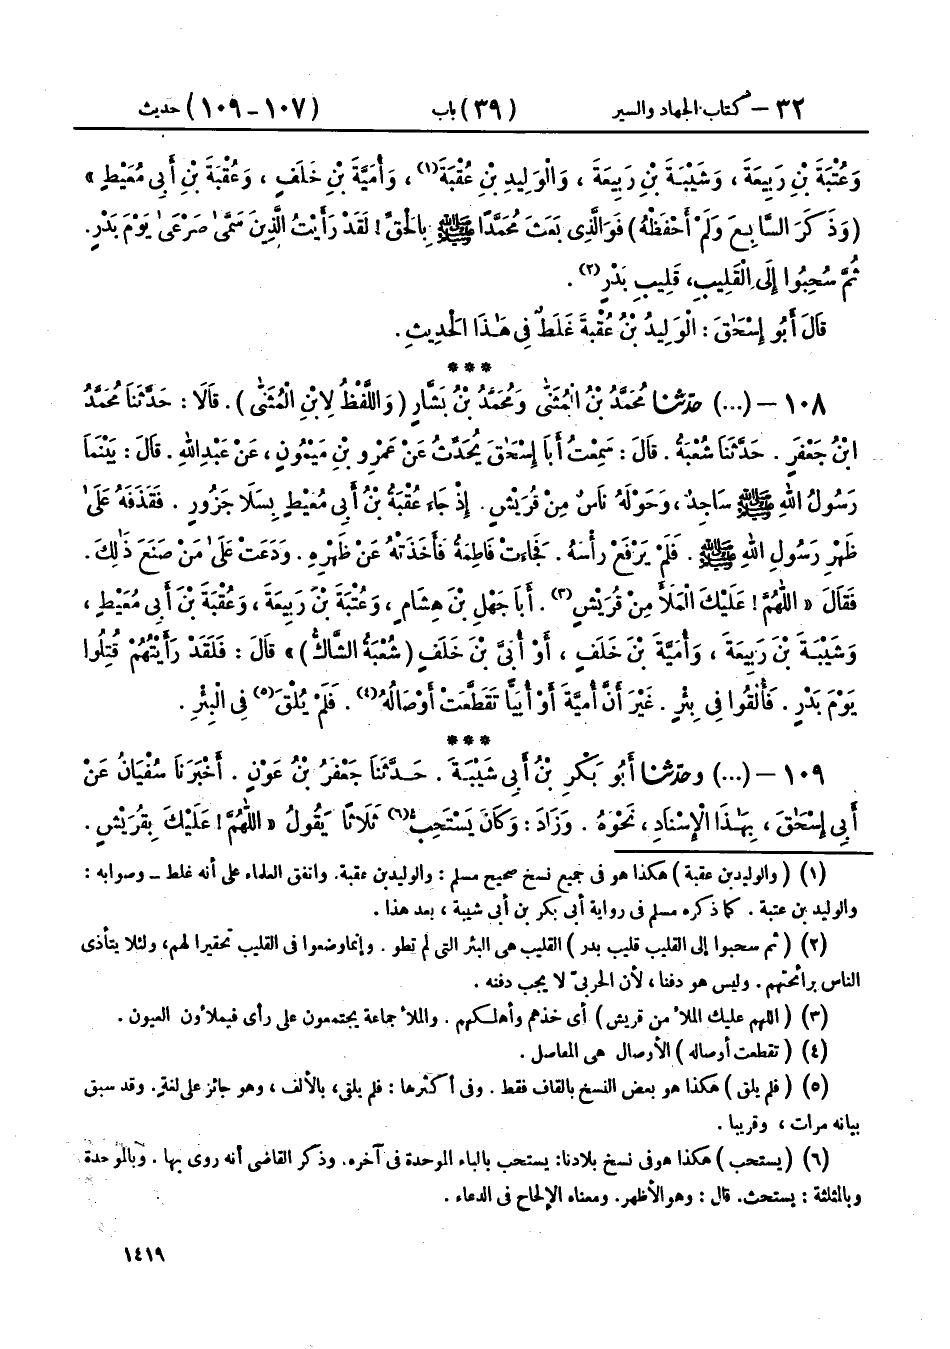 ٣٢ – كتاب الجهاد والسير (٣٩) باب (١٠٧ – ١٠٩) حديث
وَعُتْبَةَ بْنِ رَبِيعَةَ ، وَشَيْبَةَ بْنِ رَبِيعَةَ ، وَالْوَلِيدِ بْنِ عُقْبَةَ(١) ، وَأُمَيَّةَ بْنِ خَلَفٍ ، وَعُقْبَةَ بْنِ أَبِي مُعَيْطٍ »
(وَذَكَرَ السَّابِعَ وَلَمْ أَحْفَظْهُ) فَوَالَّذِى بَعَثَ مُحَمَّدًا ﷺ بِالْحَقِّ ! لَقَدْ رَأَيْتُ الَّذِينَ سَمَّىٰ صَرْعَىٰ يَوْمَ بَدْرٍ.
ثُمَّ سُحِبُوا إِلَى الْقَلِيبِ، قَلِيبِ بَدْرٍ(٢) .
قَالَ أَبُو إِسْحَٰقَ : الْوَلِيدُ بْنُ عُقْبَةَ غَلَطٌ فِي هَٰذَا الْحَدِيثِ .
***
١٠٨ – (...) حَدَّثَنَا مُحَمَّدُ بْنُ الْمُثَنَّىٰ وَمُحَمَّدُ بْنُ بَشَّارٍ ( وَاللَّفْظُ لِابْنِ الْمُثَنَّىٰ ) . قَالَا : حَدَّثَنَا مُحَمَّدُ
ابْنُ جَعْفَرٍ . حَدَّثَنَا شُعْبَةُ . قَالَ : سَمِعْتُ أَبَا إِسْحَٰقَ يُحَدِّثُ عَنْ عَمْرِو بْنِ مَيْمُونٍ ، عَنْ عَبْدِ اللهِ . قَالَ : بَيْنَمَا
رَسُولُ اللهِ ﷺ سَاجِدٌ، وَحَوْلَهُ نَاسٌ مِنْ قُرَيْشٍ . إِذْ جَاءَ عُقْبَةُ بْنُ أَبِي مُعَيْطٍ بِسَلَا جَزُورٍ . فَقَذَفَهُ عَلَىٰ
ظَهْرِ رَسُولِ اللهِ ﷺ . فَلَمْ يَرْفَعْ رَأْسَهُ . فَجَاءَتْ فَاطِمَةُ فَأَخَذَتْهُ عَنْ ظَهْرِهِ . وَدَعَتْ عَلَىٰ مَنْ صَنَعَ ذَٰلِكَ .
فَقَالَ « اللَّهُمَّ ! عَلَيْكَ الْمَلَأَ مِنْ قُرَيْشٍ(٣) . أَبَا جَهْلِ بْنَ هِشَامٍ ، وَعُتْبَةَ بْنَ رَبِيعَةَ ، وَعُقْبَةَ بْنَ أَبِي مُعَيْطٍ ،
وَشَيْبَةَ بْنَ رَبِيعَةَ ، وَأُمَيَّةَ بْنَ خَلَفٍ ، أَوْ أُبَيَّ بْنَ خَلَفٍ ( شُعْبَةُ الشَّاكُّ ) » قَالَ : فَلَقَدْ رَأَيْتُهُمْ قُتِلُوا
يَوْمَ بَدْرٍ . فَأُلْقُوا فِي بِئْرٍ . غَيْرَ أَنَّ أُمَيَّةَ أَوْ أُبَيًّا تَقَطَّعَتْ أَوْصَالُهُ(٤) . فَلَمْ يُلْقَ(٥) فِي الْبِئْرِ .
***
١٠٩ – (...) وحَدَّثَنَا أَبُو بَكْرِ بْنُ أَبِي شَيْبَةَ . حَدَّثَنَا جَعْفَرُ بْنُ عَوْنٍ . أَخْبَرَنَا سُفْيَانُ عَنْ
أَبِي إِسْحَٰقَ ، بِهَٰذَا الْإِسْنَادِ ، نَحْوَهُ . وَزَادَ : وَكَانَ يَسْتَحِبُّ(٦) ثَلَاثًا يَقُولُ « اللَّهُمَّ ! عَلَيْكَ بِقُرَيْشٍ .
(١) ( والوليد بن عقبة ) هكذا هو فى جميع نسخ صحيح مسلم : والوليد بن عقبة. واتفق العلماء على أنه غلط – وصوابه :
والوليد بن عتبة . كما ذكره مسلم فى رواية أبى بكر بن أبى شيبة ، بعد هذا .
(٢) ( ثم سحبوا إلى القليب قليب بدر ) القليب هى البئر التى لم تطو . وإنما وضعوا فى القليب تحقيرا لهم، ولئلا يتأذى
الناس برائحتهم . وليس هو دفنا ، لأن الحربىّ لا يجب دفنه .
(٣) ( اللهم عليك الملأ من قريش ) أى خذهم وأهلكهم . والملأ جماعة يجتمعون على رأى فيملأون العيون .
(٤) ( تقطعت أوصاله ) الأوصال هى المفاصل .
(٥) ( فلم يلق ) هكذا هو بعض النسخ بالقاف فقط . وفى أكثرها : فلم يلقى، بالألف ، وهو جائز على لغة. وقد سبق
بيانه مرات ، وقريبا .
(٦) ( يستحب ) هكذا هو فى نسخ بلادنا: يستحب بالباء الموحدة فى آخره. وذكر القاضى أنه روى بها . وبالموحدة
وبالمثلثة : يستحث. قال : وهو الأظهر. ومعناه الإلحاح فى الدعاء .
١٤١٩